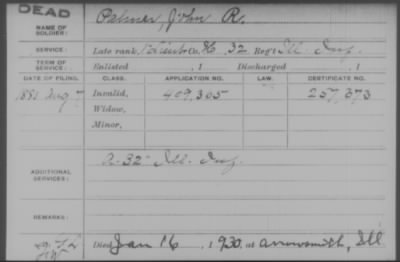 DEAD
NAME OF SOLDIER: Palmer, John R.
SERVICE: Late rank, Co. H, 32 Reg't Ill. Inf.
TERM OF SERVICE: Enlisted , 1 Discharged , 1
DATE OF FILING. CLASS. APPLICATION NO. LAW. CERTIFICATE NO.
1881 Aug 7 Invalid, 409,305 257,373
Widow,
Minor,
ADDITIONAL SERVICES: 32 Ill. Inf.
REMARKS:
Died Jan 16, 1930, at Arrowsmith, Ill